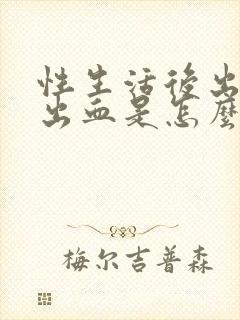 性生活後出
出血是怎麼
梅尔吉普森